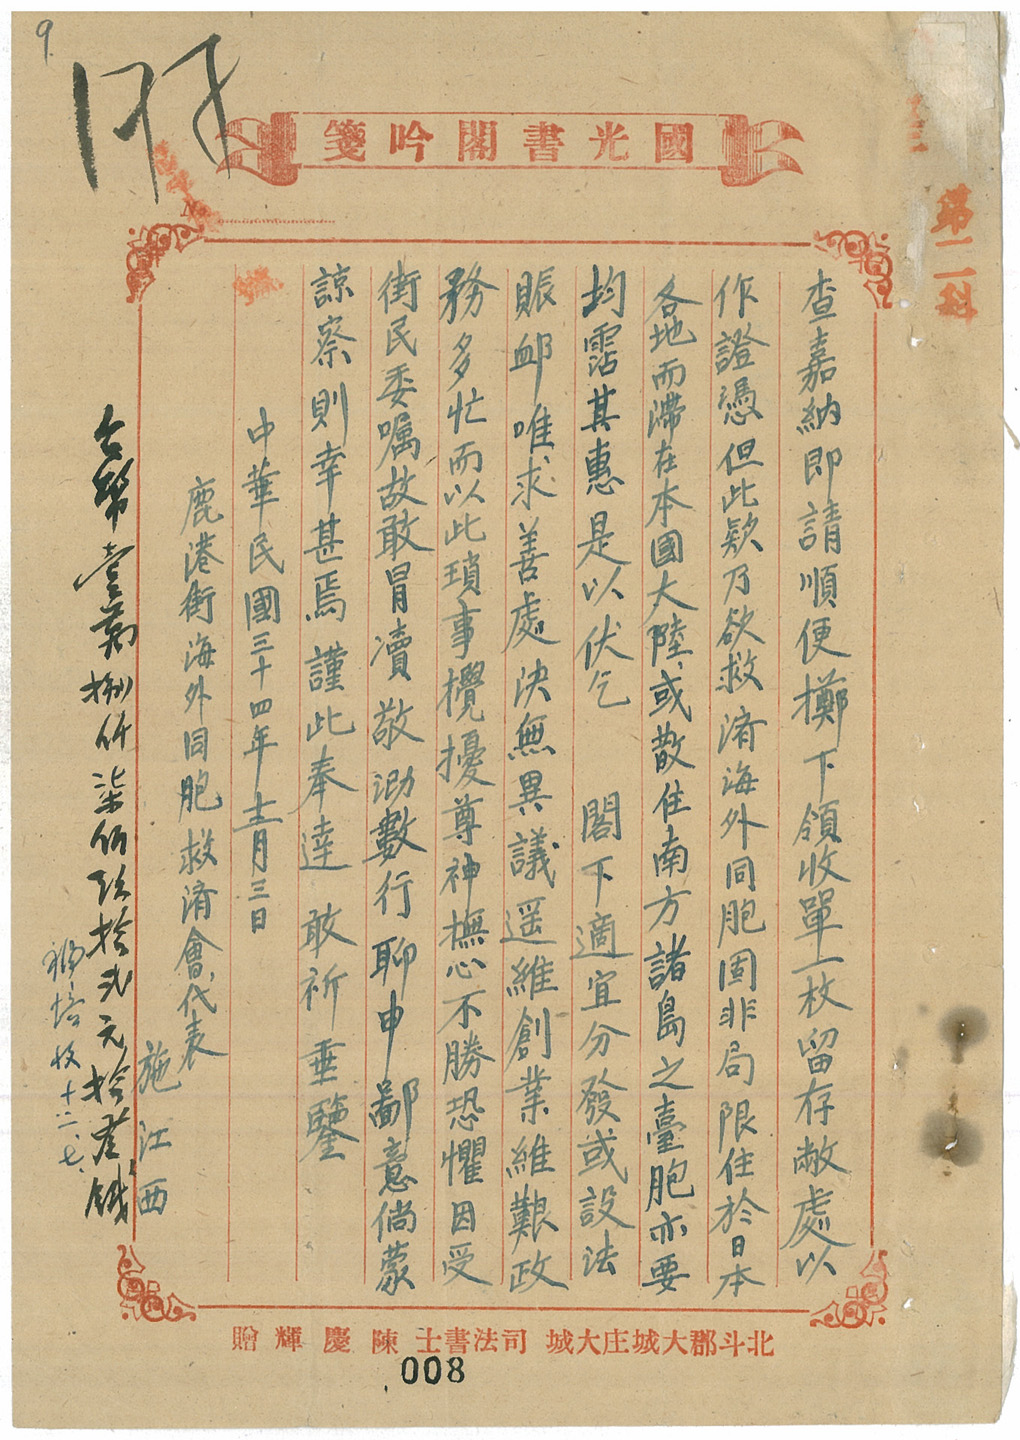 9
附
國光書閣吟箋
第二科
號
查嘉納即請順便擲下領收單一枚留存敝處以
作證憑但此欵乃欲救濟海外同胞固非局限住於日本
各地而滯在本國大陸、或散住南方諸島之臺胞亦要
均霑其惠是以伏乞 閣下適宜分發或設法
賑卹唯求善處決無異議遥維創業維艱政
務多忙而以此瑣事攪擾尊神撫心不勝恐懼因受
街民委嘱故敢冒瀆敬泐數行聊申鄙意倘蒙
諒察則幸甚焉謹此奉達 敢祈垂鑒
中華民國三十四年十二月三日
鹿港街海外同胞救濟會、代表
施江西
台幣壹萬捌仟柒佰玖拾弍元拾叁錢
收十二、七、
北斗郡大城庄大城 司法書士 陳慶輝贈
008